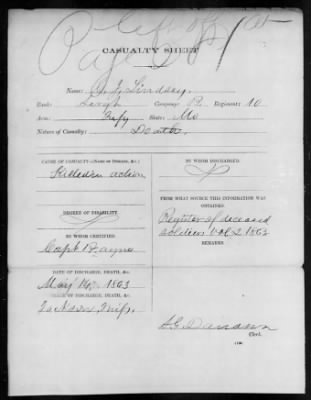 Page
CASUALTY SHEET.
Name: Lindsey
Rank: Company: Regiment: 10
Arm: State: Mo
Nature of Casualty: Death
CAUSE OF CASUALTY—(Name of Disease, &c.)
Killed in action
BY WHOM DISCHARGED.
DEGREE OF DISABILITY.
FROM WHAT SOURCE THIS INFORMATION WAS
OBTAINED.
Register of deceased
soldiers Vol 2 1863
BY WHOM CERTIFIED.
Capt Payne
REMARKS.
DATE OF DISCHARGE, DEATH, &c.
May 14, 1863
PLACE OF DISCHARGE, DEATH, &c.
Jackson Miss.
Clerk.